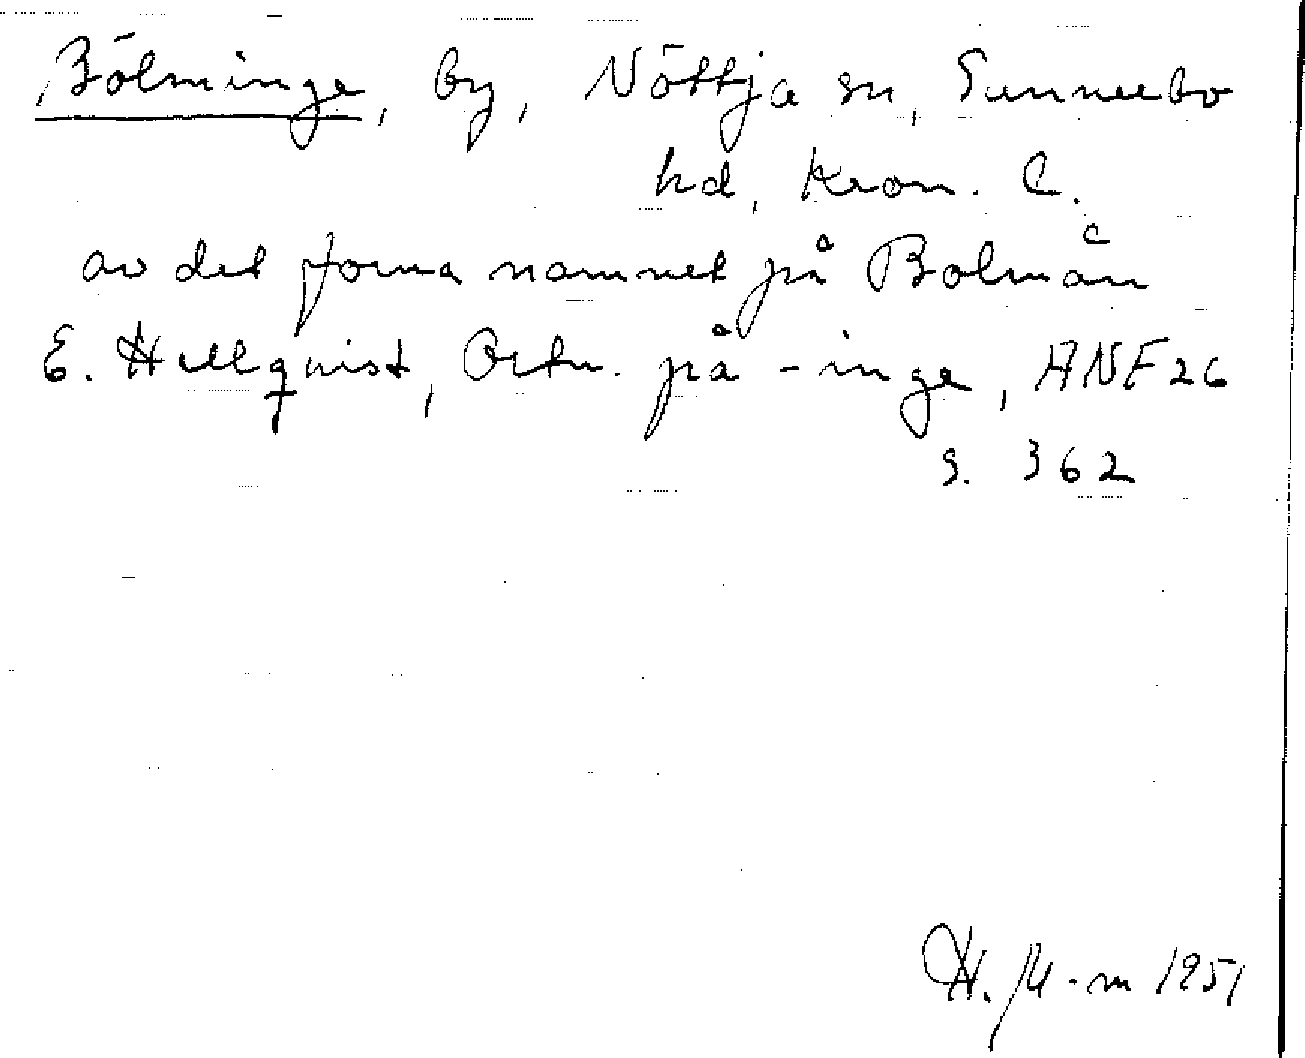 Bölminge, by, Nöttja sn, Sunnerbo
hd, Kron. l.
av det forna namnet på Bolmån
E. Hellquist, Ortn. på -inge, ANF 26
s. 362
H. M-m 1951